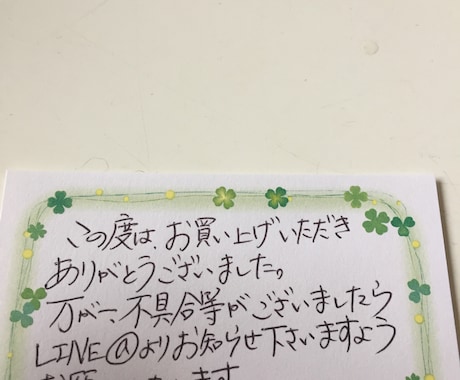 この度は、お買い上げいただき
ありがとうございました。
万が一、不具合等がございましたら
LINE@よりお知らせ下さいますよう